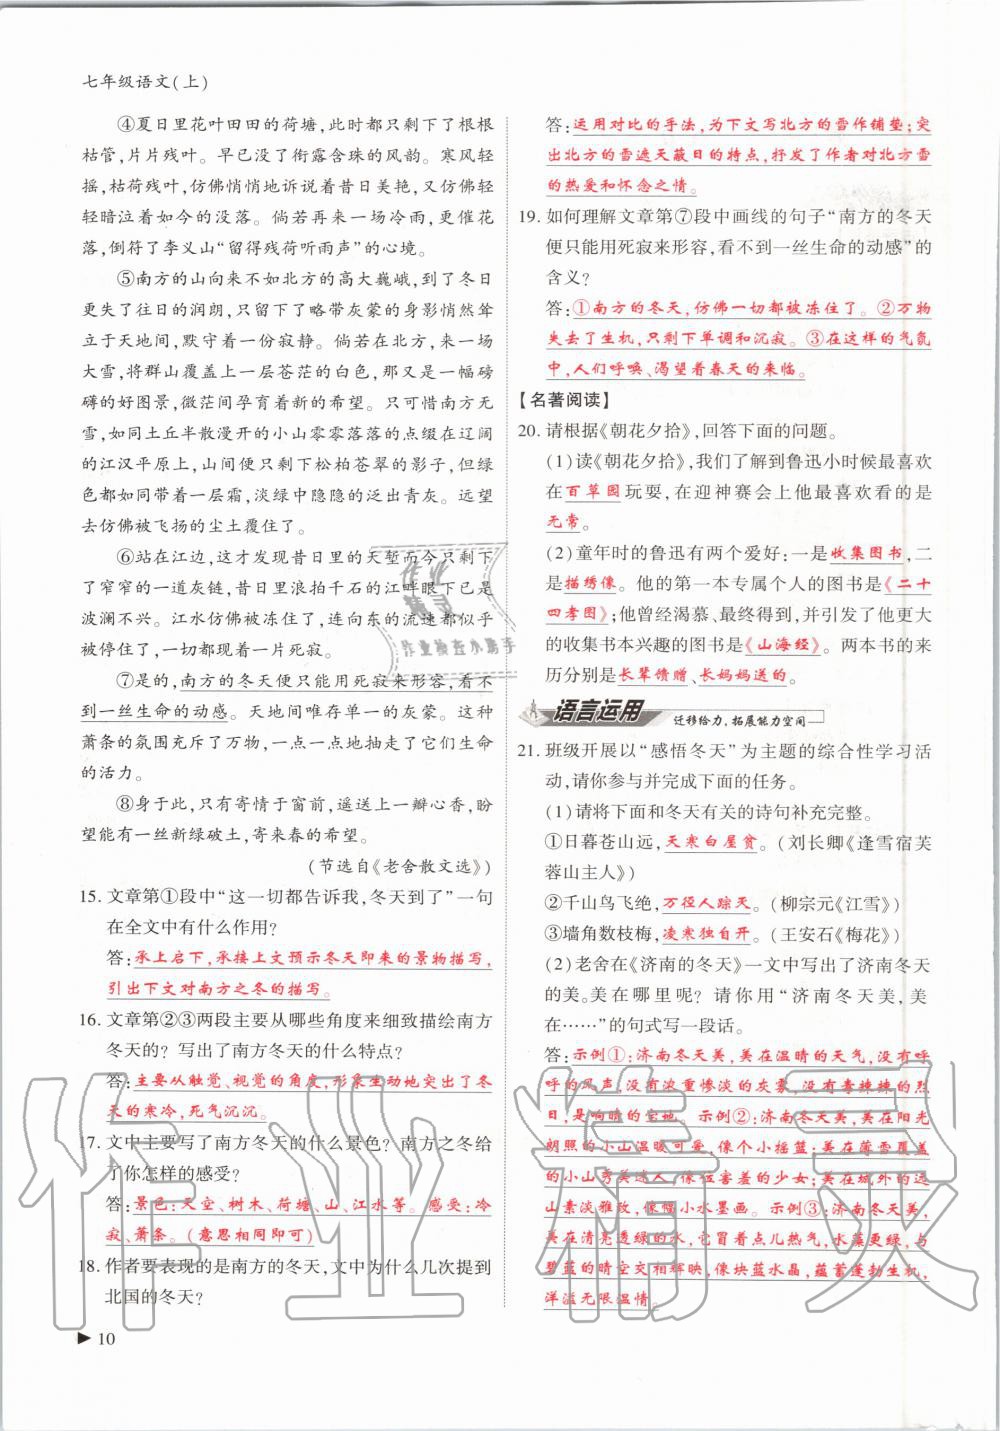 七年级语文(上)
④夏日里花叶田田的荷塘,此时都只剩下了根根
枯管,片片残叶。早已没了衔露含珠的风韵。寒风轻
摇,枯荷残叶,仿佛悄悄地诉说着昔日美艳,又仿佛轻
轻暗泣着如今的没落。倘若再来一场冷雨,更催花
落,倒符了李义山“留得残荷听雨声”的心境。
⑤南方的山向来不如北方的高大巍峨,到了冬日
更失了往日的润朗,只剩下了略带灰蒙的身影悄然耸
立于天地间,默守着一份寂静。倘若在北方,来一场
大雪,将群山覆盖上一层苍茫的白色,那又是一幅磅
礴的好图景,微茫间孕育着新的希望。只可惜南方无
雪,如同土丘半散漫开的小山零零落落的点缀在辽阔
的江汉平原上,山间只剩下松柏苍翠的影子,但绿
色都如同带着一层霜,淡绿中隐隐的泛出青灰。远望
去仿佛被飞扬的尘土覆住了。
⑥站在江边,这才发现昔日里的天堑而今只剩下
了窄窄的一道灰链,昔日里浪拍千石的江畔眼下已是
波澜不兴。江水仿佛被冻住了,连向东的流速都似乎
被停住了,一切都现着一片死寂。
⑦是的,南方的冬天便只能用死寂来形容,看不
到一丝生命的动感。天地间唯存单一的灰蒙。这种
萧条的氛围充斥了万物,一点一点地抽走了它们生命
的活力。
⑧身于此,只有寄情于窗前,遥送上一瓣心香,盼
望能有一丝新绿破土,寄来春的希望。
(节选自《老舍散文选》)
15. 文章第①段中“这一切都告诉我,冬天到了”一句
在全文中有什么作用?
答:承上启下,承接上文预示冬天即来的景物描写,
引出下文对南方之冬的描写。
16. 文章第②③两段主要从哪些角度来细致描绘南方
冬天的?写出了南方冬天的什么特点?
答:主要从触觉、视觉的角度,形象生动地突出了冬
天的寒冷,死气沉沉。
17. 文中主要写了南方冬天的什么景色?南方之冬给
了你怎样的感受?
答:景色:天空、树木、荷塘、山、江水等。感受:冷
寂、萧条。(意思相同即可)
18. 作者要表现的是南方的冬天,文中为什么几次提到
北国的冬天?
▶ 10
答:运用对比的手法,为下文写北方的雪作铺垫;突
出北方的雪遮天蔽日的特点,抒发了作者对北方雪
的热爱和怀念之情。
19. 如何理解文章第⑦段中画线的句子“南方的冬天
便只能用死寂来形容,看不到一丝生命的动感”的
含义?
答:①南方的冬天,仿佛一切都被冻住了。②万物
失去了生机,只剩下单调和沉寂。③在这样的气氛
中,人们呼唤、渴望着春天的来临。
【名著阅读】
20. 请根据《朝花夕拾》,回答下面的问题。
(1)读《朝花夕拾》,我们了解到鲁迅小时候最喜欢
在百草园玩耍,在迎神赛会上他最喜欢看的是
无常。
(2)童年时的鲁迅有两个爱好:一是收集图书,二
是描绣像。他的第一本专属个人的图书是《二十
四孝图》;他曾经渴慕、最终得到,并引发了他更大
的收集书本兴趣的图书是《山海经》。两本书的来
历分别是长辈馈赠、长妈妈送的。
语言运用 迁移给力,拓展能力空间
21. 班级开展以“感悟冬天”为主题的综合性学习活
动,请你参与并完成下面的任务。
(1)请将下面和冬天有关的诗句补充完整。
①日暮苍山远,天寒白屋贫。(刘长卿《逢雪宿芙
蓉山主人》)
②千山鸟飞绝,万径人踪灭。(柳宗元《江雪》)
③墙角数枝梅,凌寒独自开。(王安石《梅花》)
(2)老舍在《济南的冬天》一文中写出了济南冬天
的美。美在哪里呢?请你用“济南冬天美,美
在……”的句式写一段话。
答:示例①:济南冬天美,美在温晴的天气,没有呼
呼的风声,没有浓重惨淡的灰雾,没有毒辣辣的烈
日,是响晴的宝地。示例②:济南冬天美,美在阳光
朗照的小山温暖可爱,像个小摇篮;美在薄雪覆盖
的小山秀美迷人,像位害羞的少女;美在城外的远
山素淡雅致,像幅小水墨画。示例③:济南冬天美,
美在清亮透绿的水,它冒着点儿热气,水藻更绿,与
碧蓝的晴空交相辉映,像块蓝水晶,蕴蓄蓬勃生机,
洋溢无限温情。
作业精灵
作业精灵
作业检查小助手